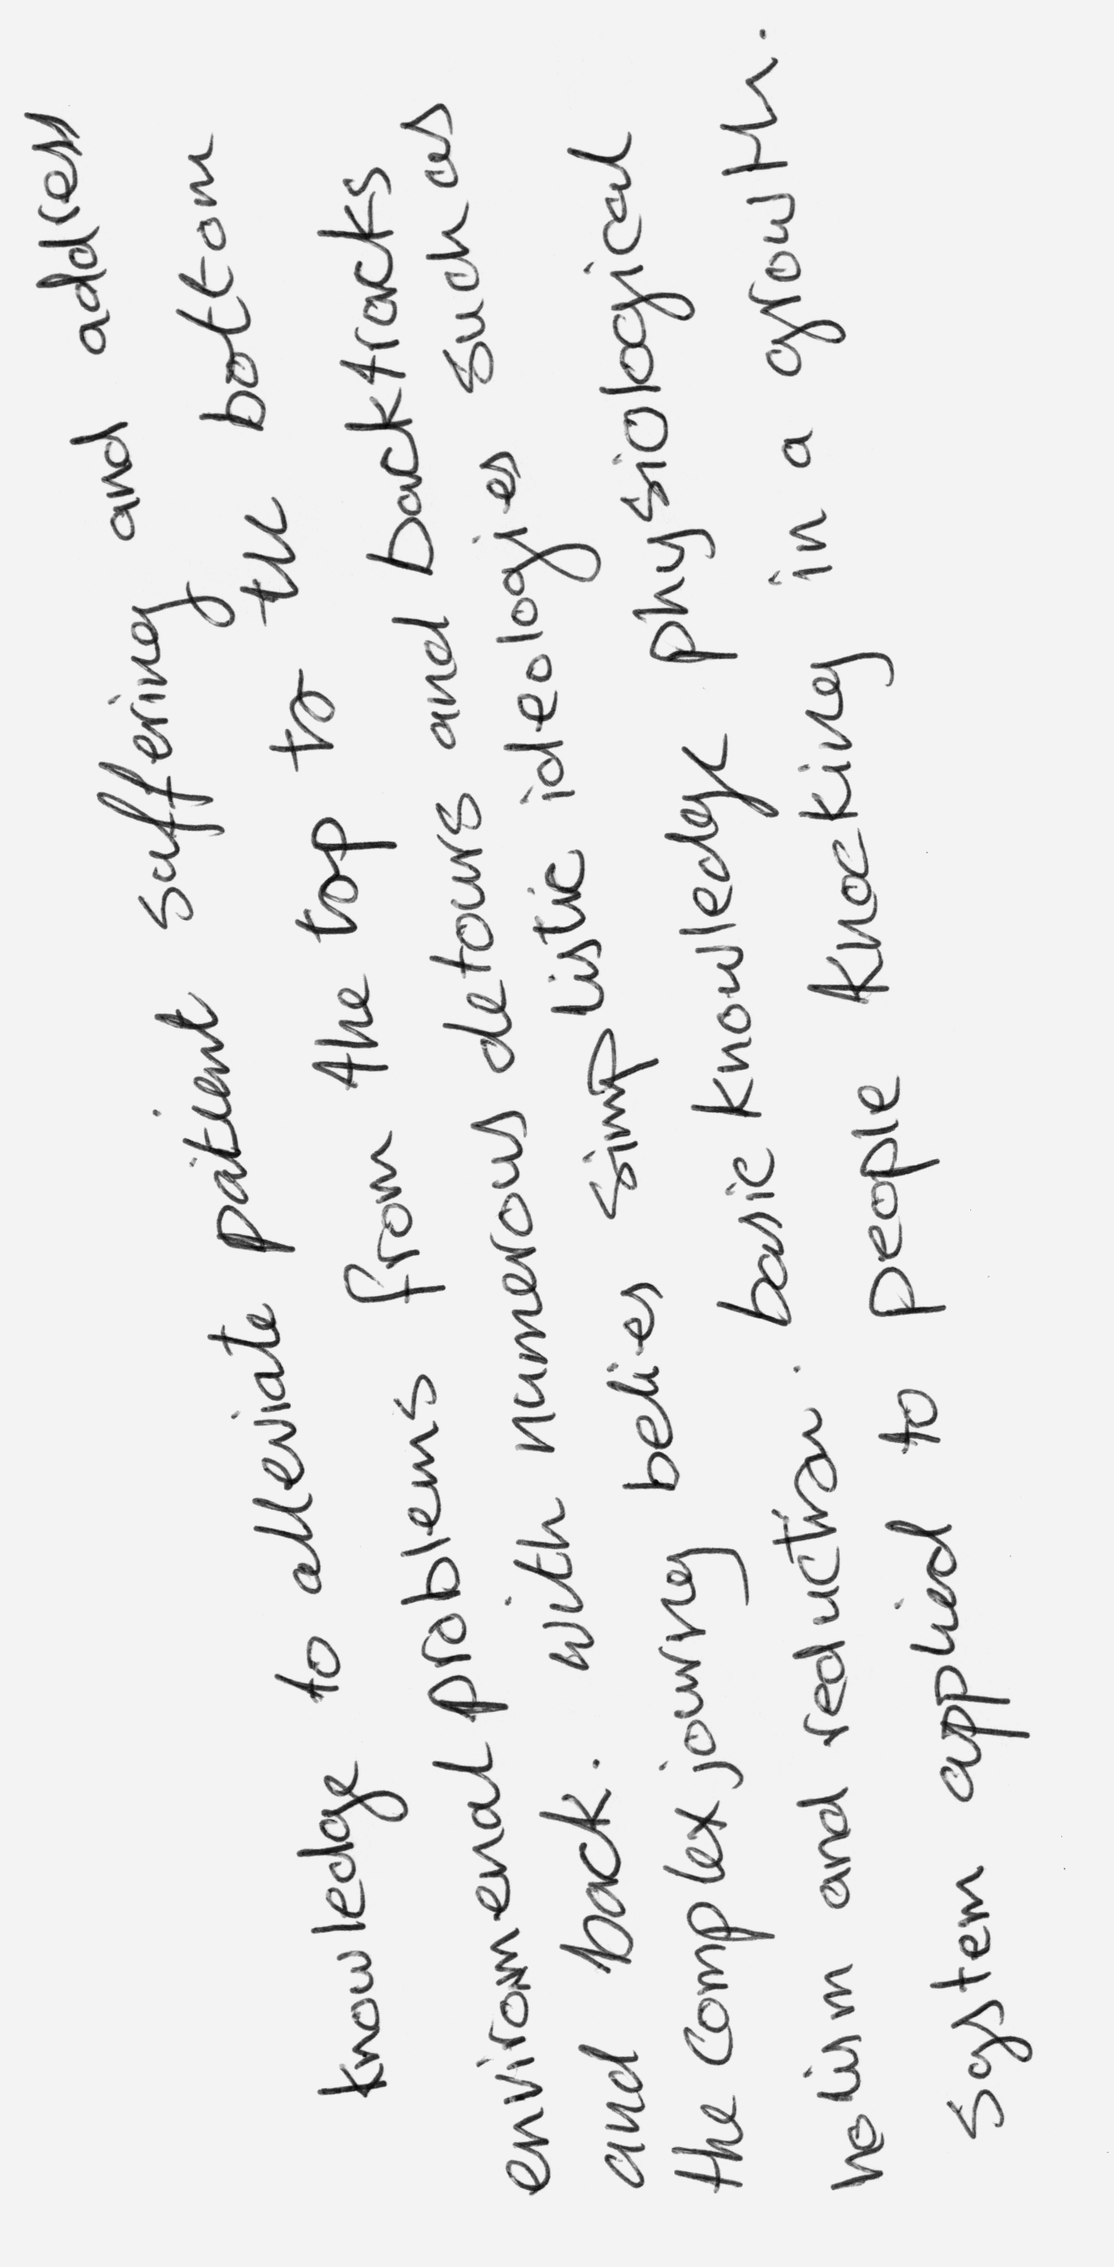 knowledge to alleviate patient suffering and address
enviromenal problems from the top to the bottom
and back. with numerous detours and backtracks
the complex journey belies simplistic ideologies such as
holism and reduction. basic knowledge physiological
system applied to people knocking in a growth.